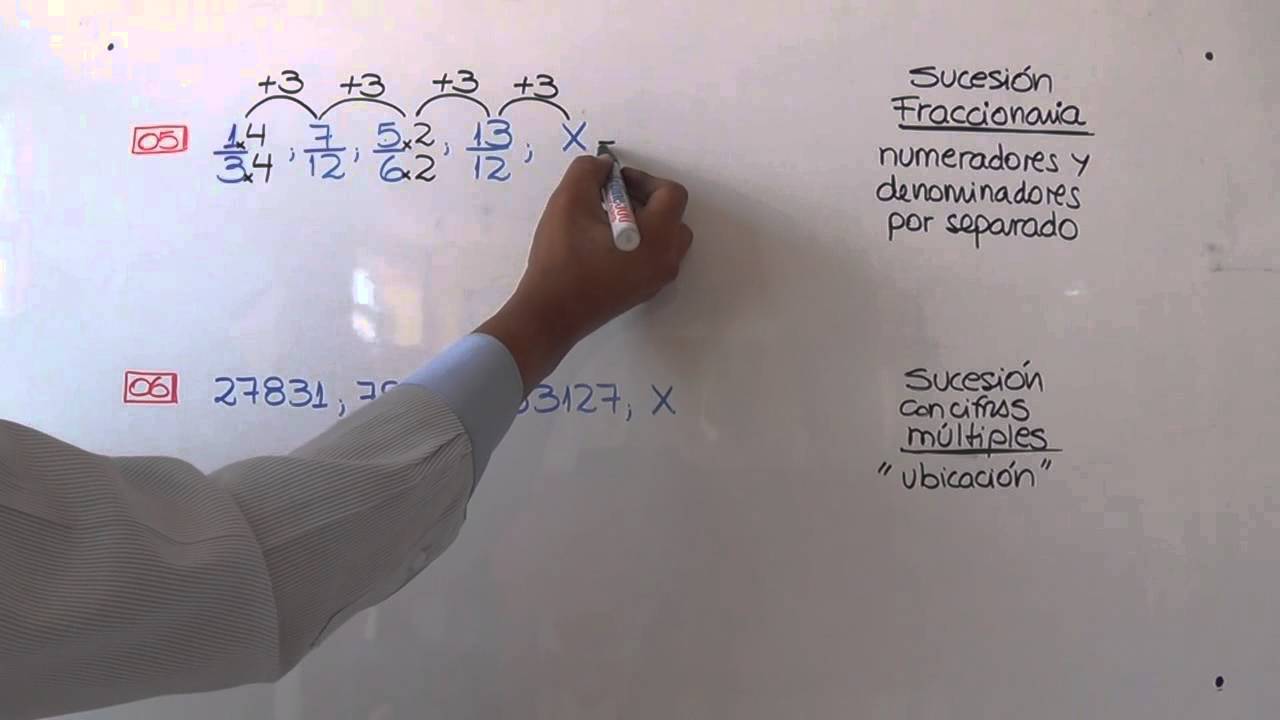 +3 +3 +3 +3
05 1x4/3x4 ; 7/12 ; 5x2/6x2 ; 13/12 ; X =
Sucesión
Fraccionaria
numeradores y
denominadores
por separado
06 27831 ; 3127 ; X
Sucesión
con cifras
múltiples
"ubicación"